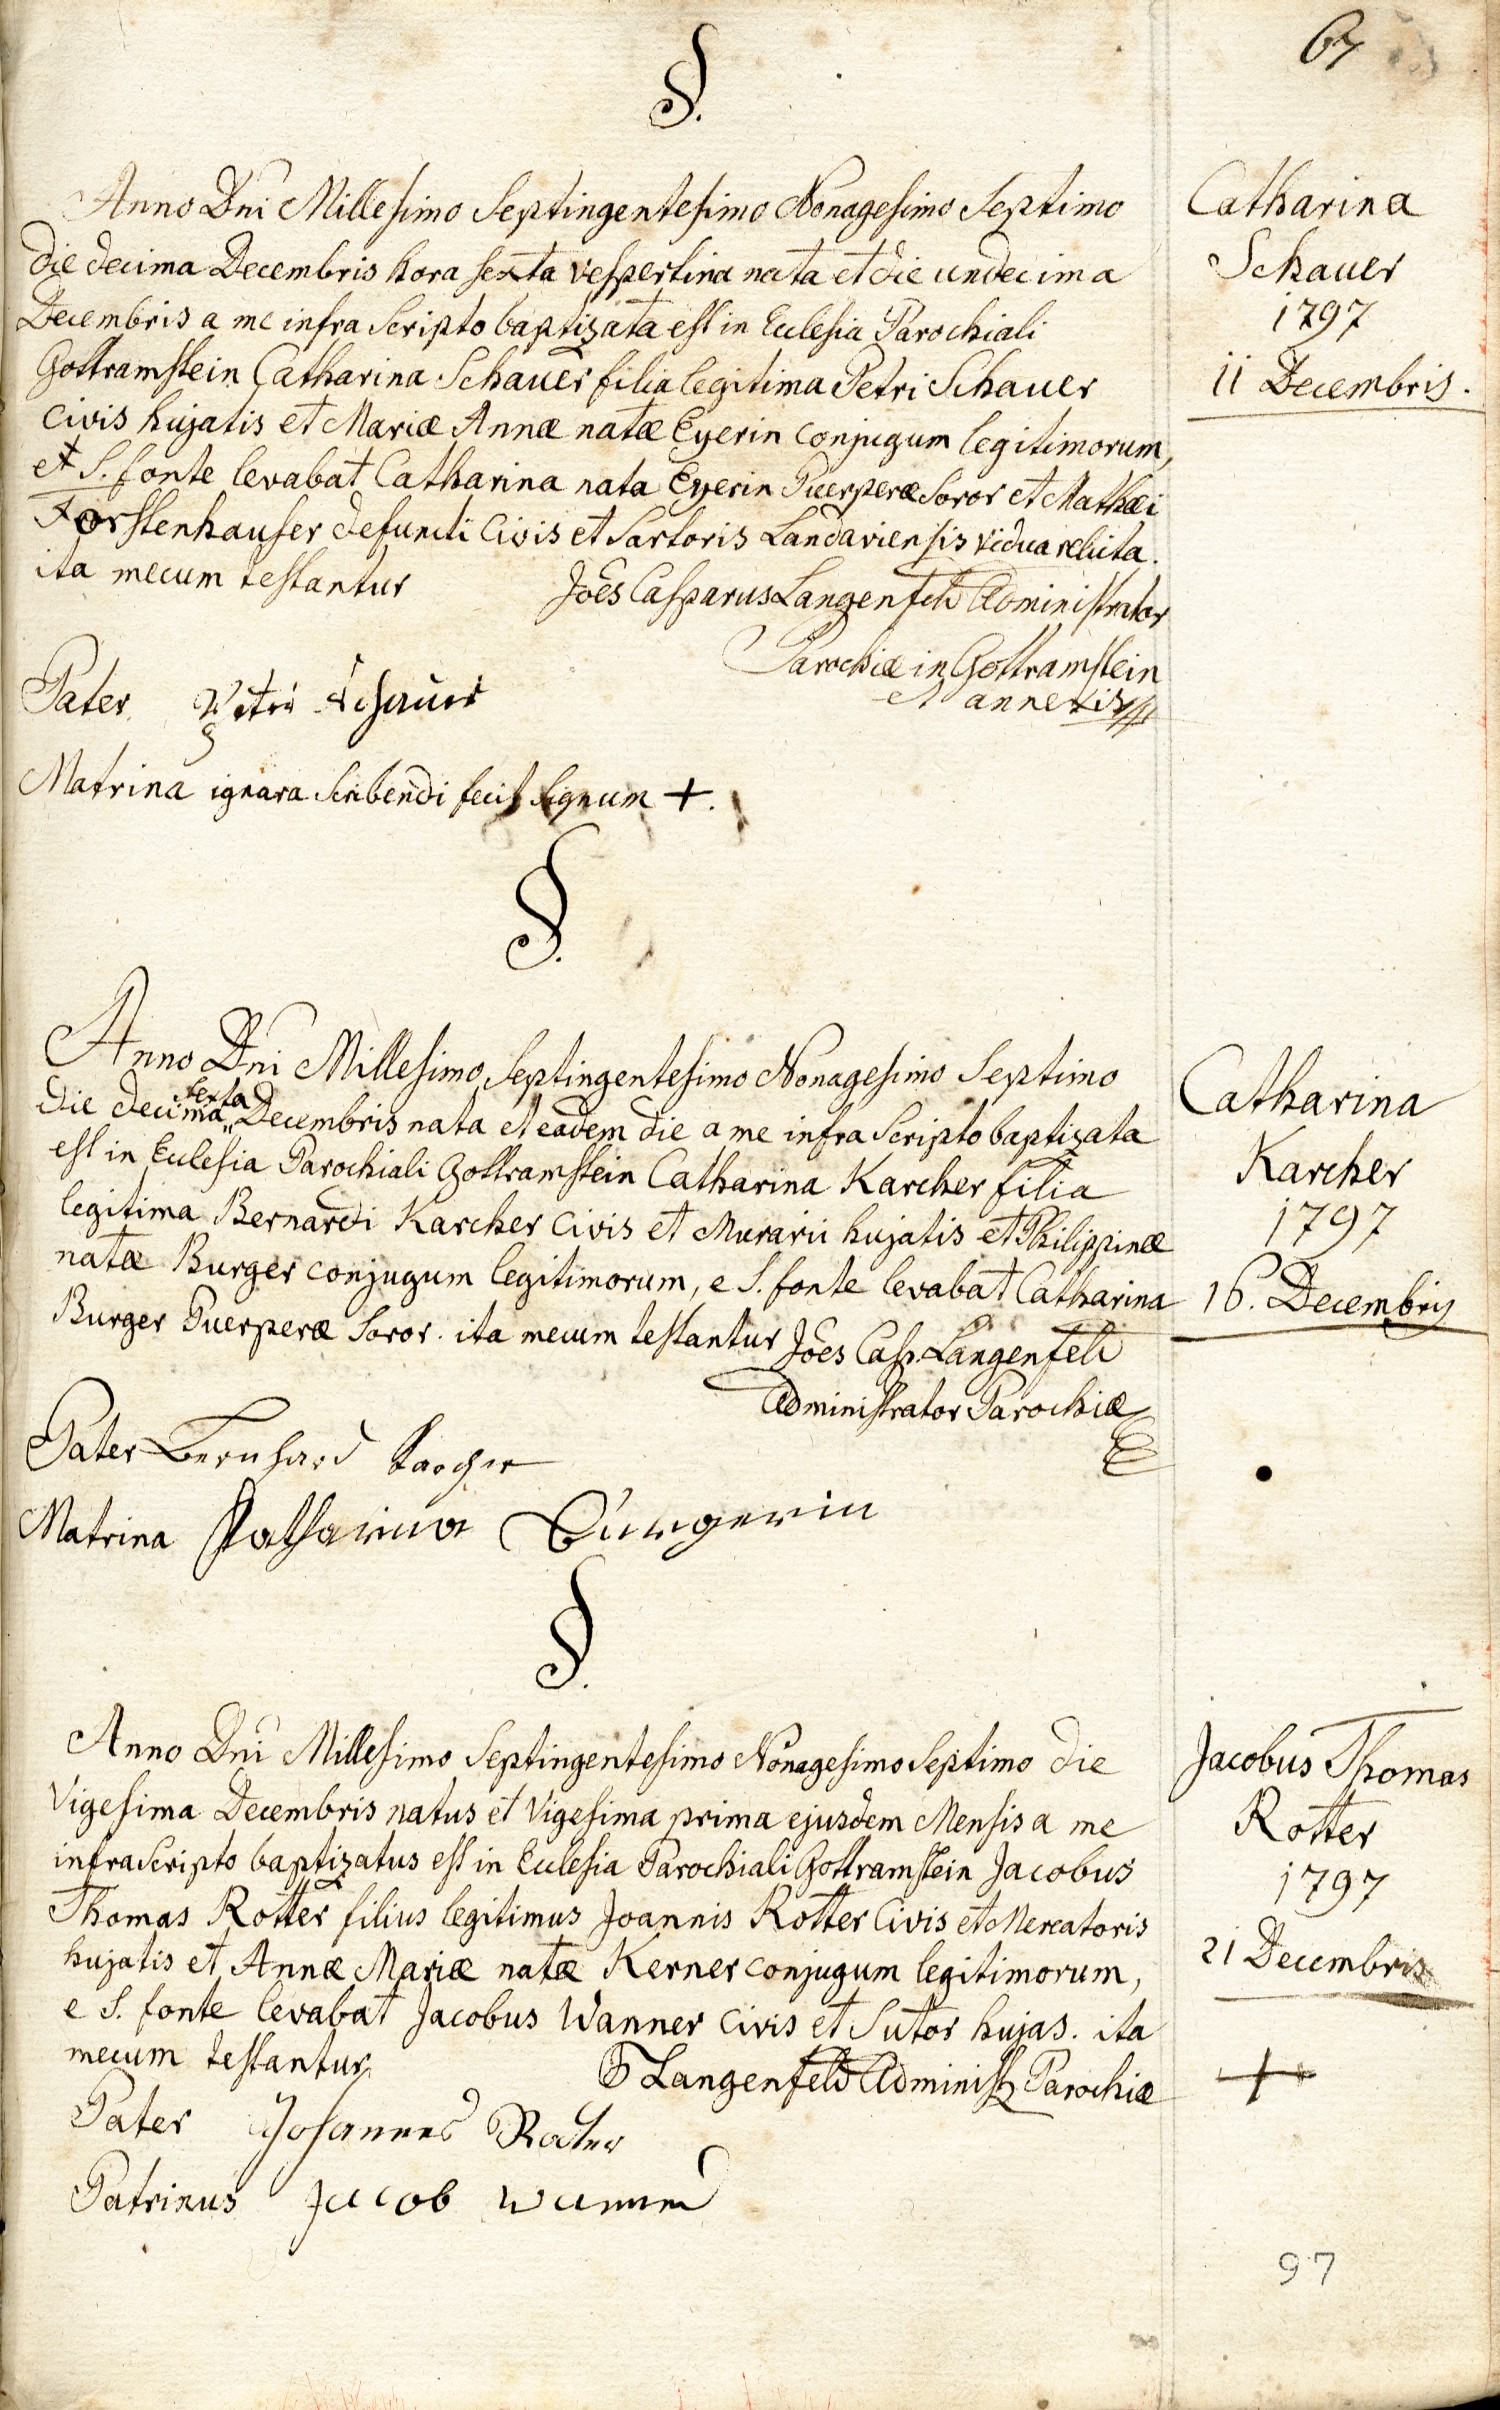 67
§.
Anno Dni Millesimo Septingentesimo Nonagesimo Septimo
die decima Decembris hora sexta vespertina nata et die undecima
Decembris a me infra Scripto baptizata est in Eclesia Parochiali
Gottramstein Catharina Schauer filia legitima Petri Schauer
Civis hujatis et Mariæ Annæ natæ Eyerin conjugum legitimorum,
et S. fonte levabat Catharina nata Eyerin Puerperæ Soror et Mathæi
Forstenhauser defuncti Civis et Sartoris Landaviensis vidua relicta.
ita mecum testantur
Joês Casparus Langenfeld Administrator
Parochiæ in Gottramstein
et annexis
Pater Petrü Schauer
Matrina ignara Scribendi fecit Signum +.
Catharina
Schauer
1797
11 Decembris.
§.
Anno Dni Millesimo Septingentesimo Nonagesimo Septimo
die decima sexta Decembris nata et eadem die a me infra Scripto baptizata
est in Eclesia Parochiali Gottramstein Catharina Karcher filia
legitima Bernardi Karcher Civis et Murarii hujatis et Philippinæ
natæ Burger conjugum legitimorum, e S. fonte levabat Catharina
Burger Puerperæ Soror. ita mecum testantur
Joês Casp. Langenfeld
Administrator Parochiæ
Pater Bernhard Karcher
Matrina Catharina Burgerin
Catharina
Karcher
1797
16. Decembris
§.
Anno Dni Millesimo Septingentesimo Nonagesimo Septimo die
Vigesima Decembris natus et Vigesima prima ejusdem Mensis a me
infraScripto baptizatus est in Eclesia Parochiali Gottramstein Jacobus
Thomas Rotter filius legitimus Joannis Rotter Civis et Mercatoris
hujatis et Annæ Mariæ natæ Kerner conjugum legitimorum,
e S. fonte levabat Jacobus Wanner Civis et Sutor hujas. ita
mecum testantur
Langenfeld Administr Parochiæ
Pater Johannes Rotter
Patrinus Jacob Wanner
Jacobus Thomas
Rotter
1797
21 Decembris
+
97